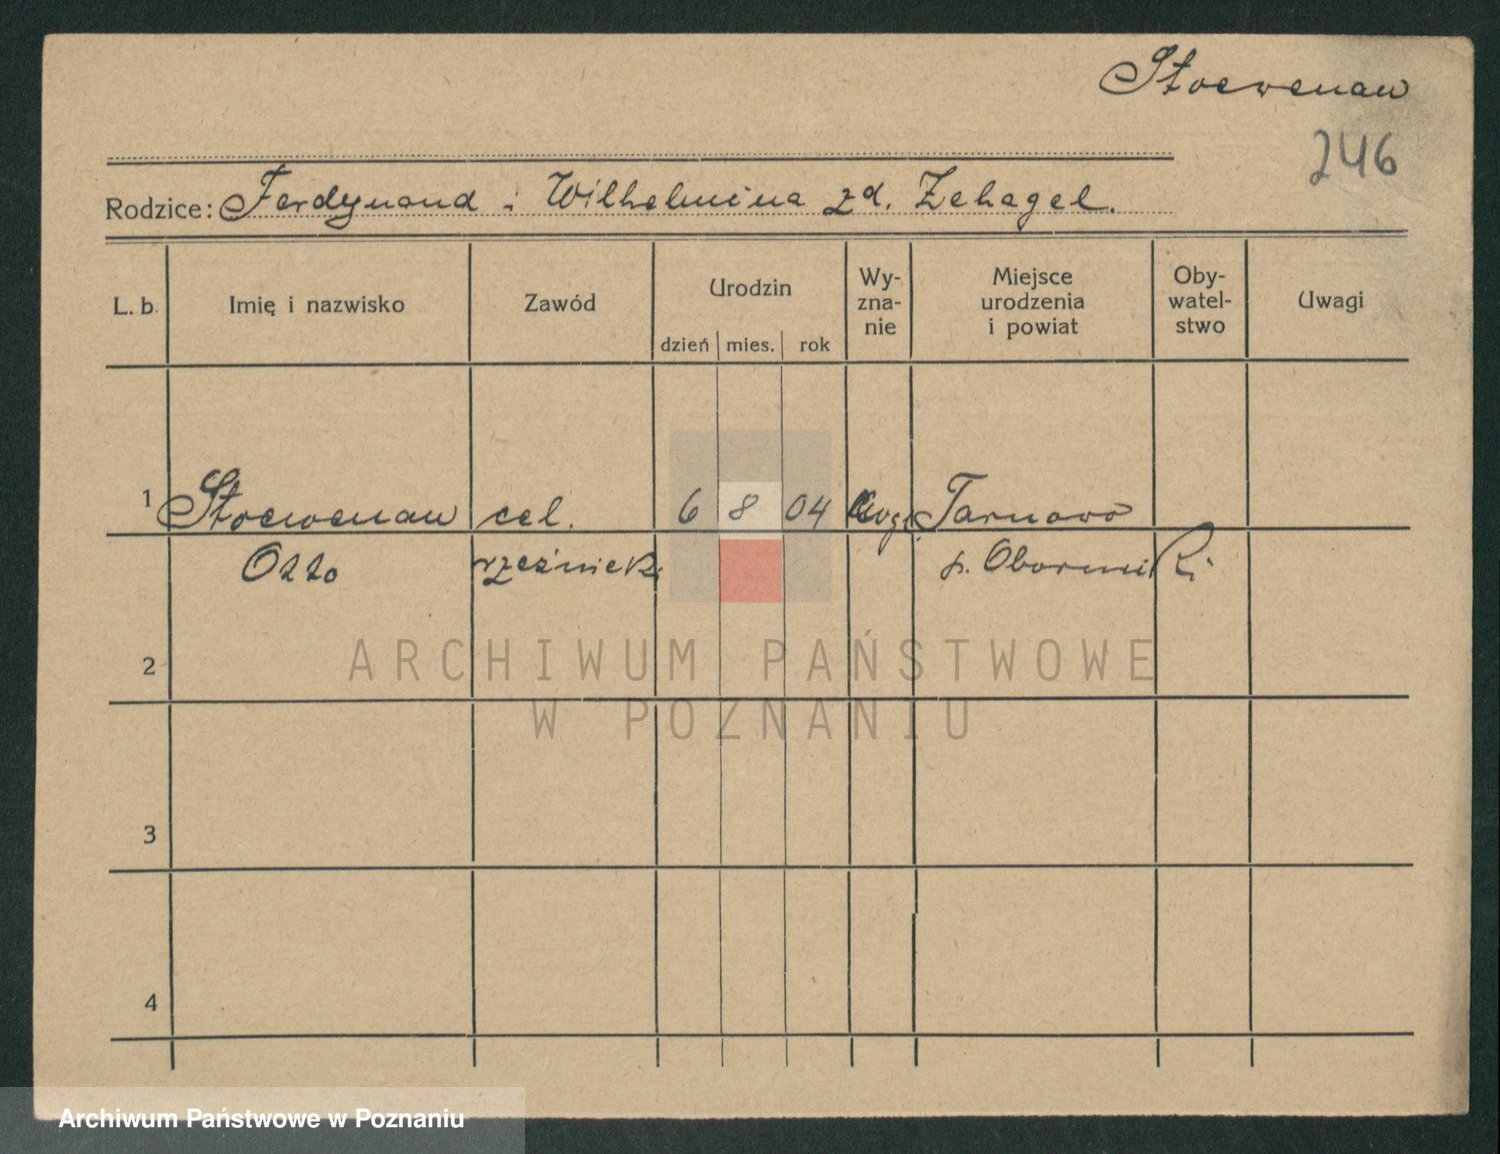 Stoewenau
246
Rodzice: Ferdynand i Wilhelmina zd. Zehagel.
L. b. Imię i nazwisko Zawód Urodzin dzień mies. rok Wy-zna-nie Miejsce urodzenia i powiat Oby-watel-stwo Uwagi
1 Stoewenau cel. 6 8 04 Tarnowo
Otto rzeźnicki p. Oborniki
2
ARCHIWUM PAŃSTWOWE
W POZNANIU
3
4
Archiwum Państwowe w Poznaniu